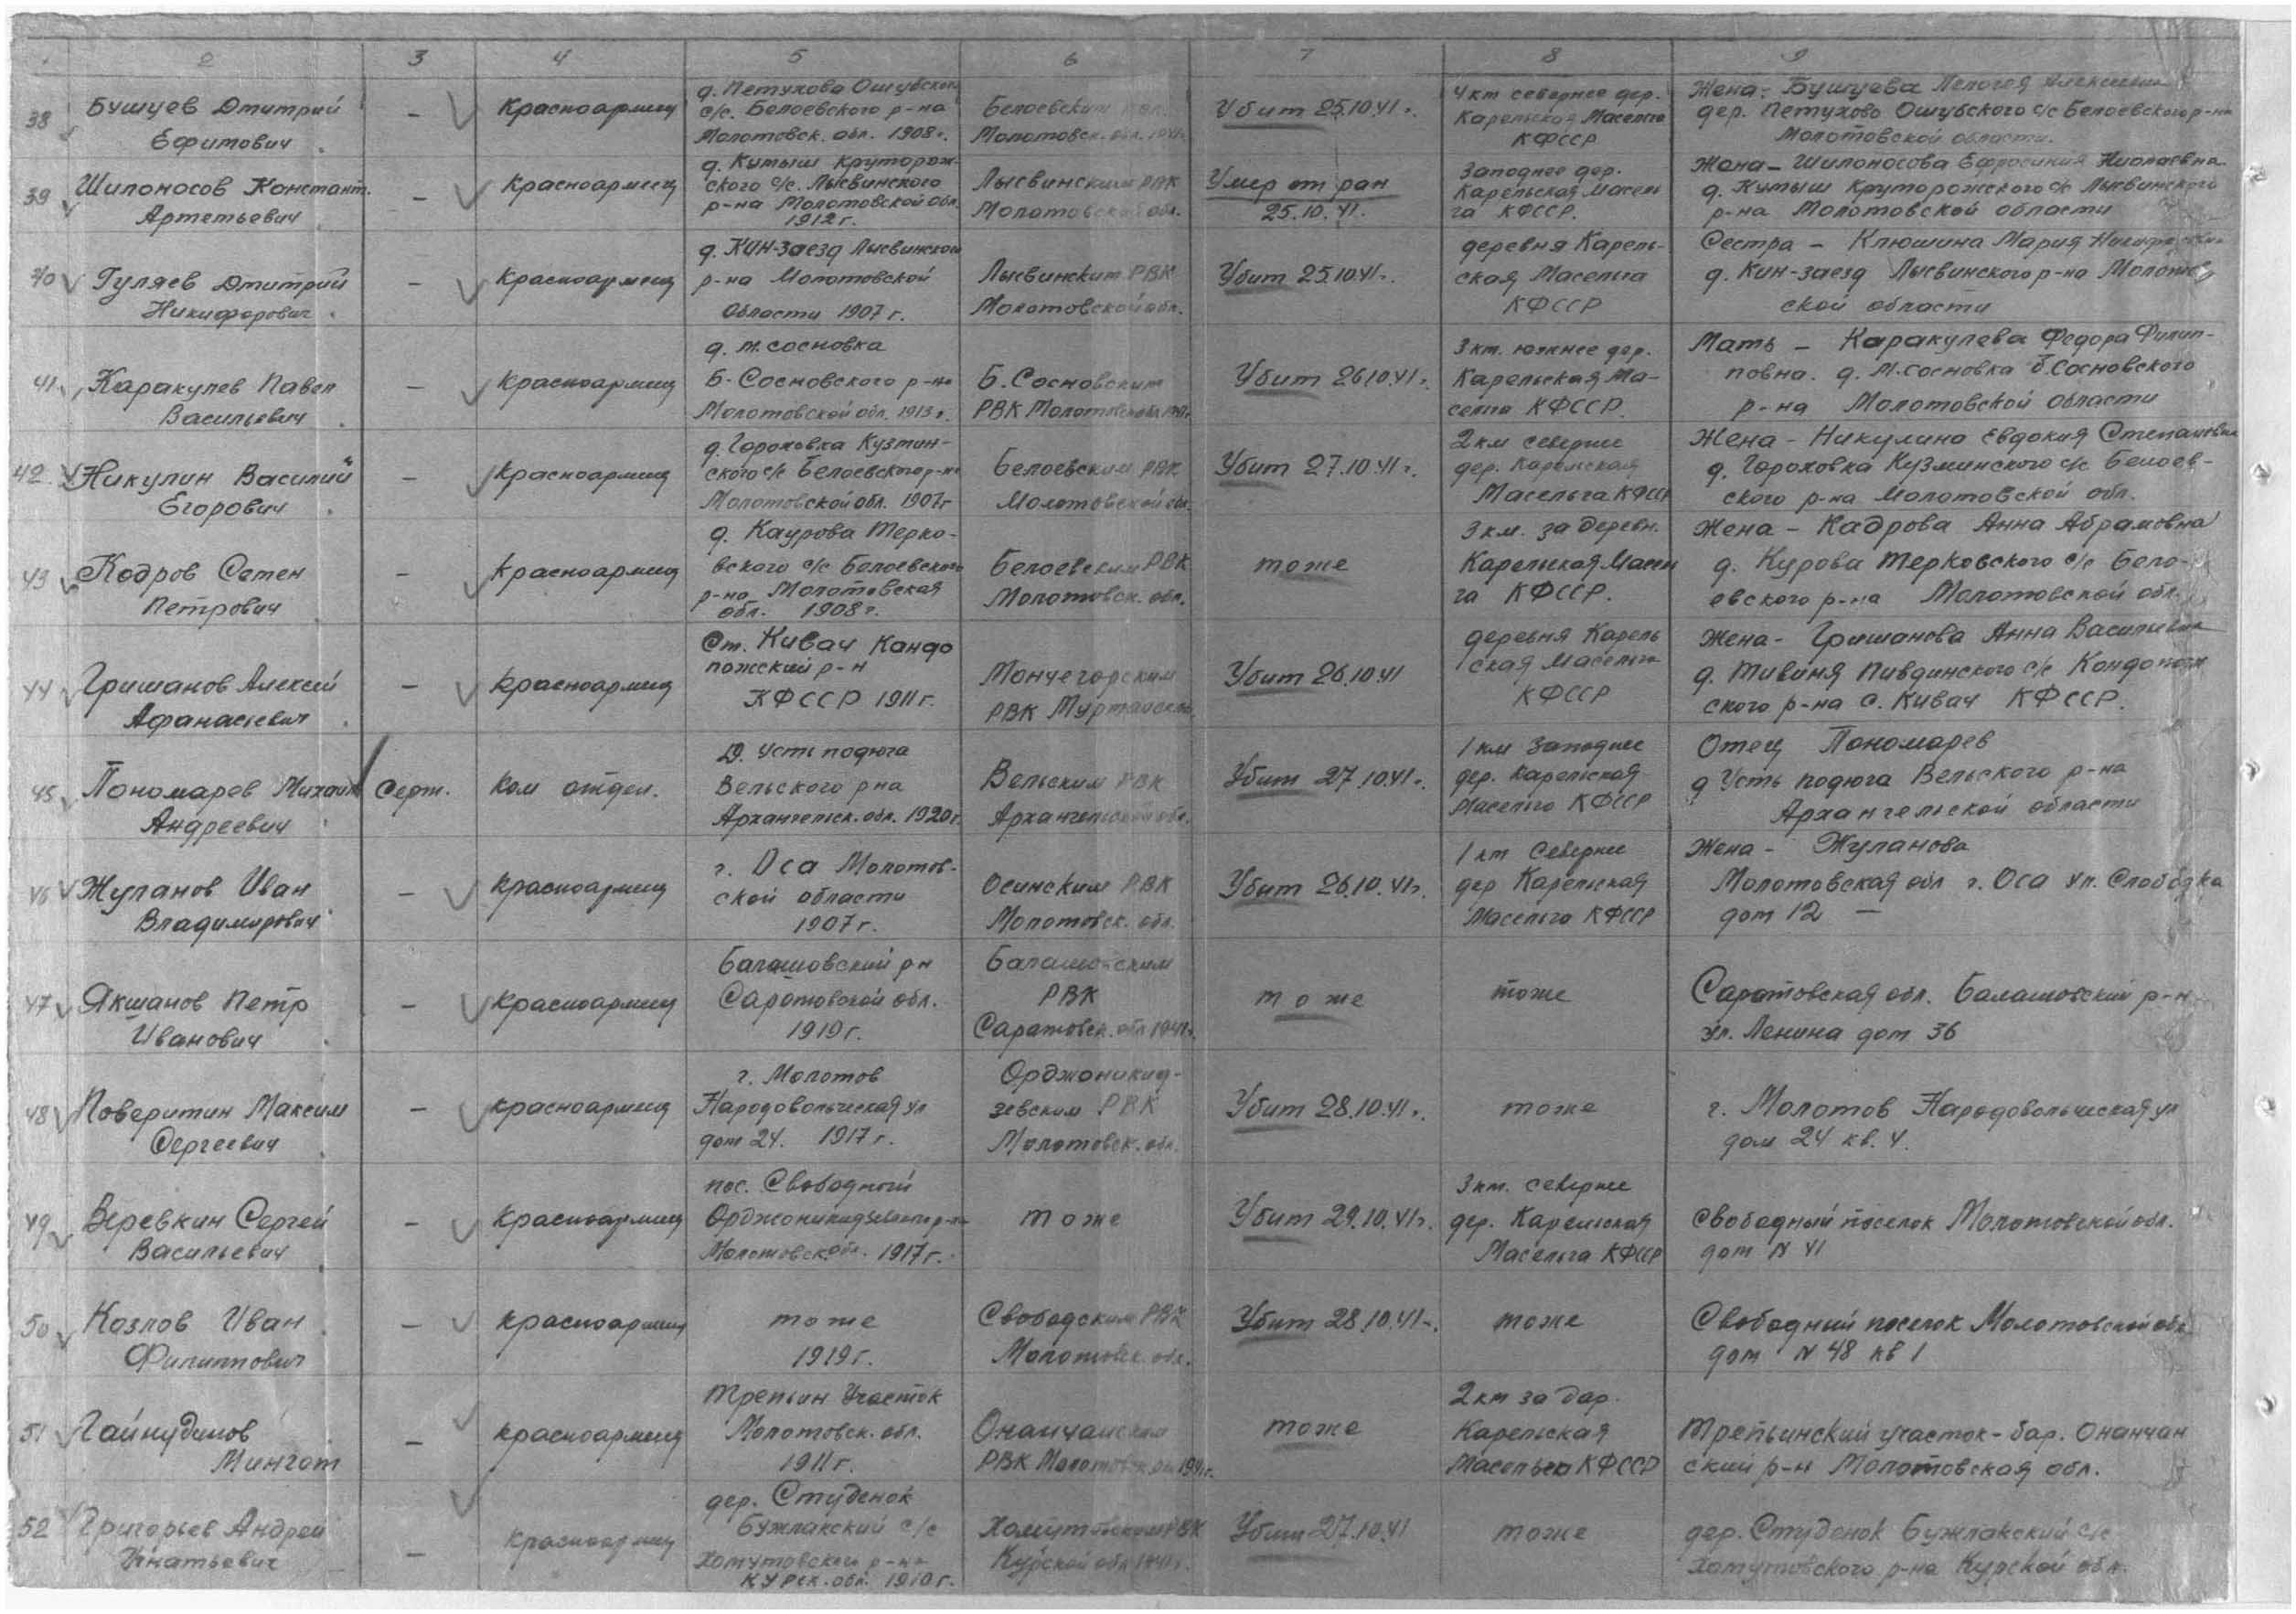 1 2 3 4 5 6 7 8 9
38 Бушуев Дмитрий
Ефимович
—
Красноармеец
д. Петухова Ошибского
с/с. Белоевского р-на
Молотовск. обл. 1908 г.
Белоевским
Молотовск. обл.
Убит 25.10.41 г.
4 км севернее дер.
Карельская Масельга
КФССР
Жена - Бушуева Пелогея
дер. Петухово Ошибского с/с Белоевского р-на
Молотовской области.
39 Шилоносов Констант.
Артемьевич
—
Красноармеец
д. Кумыш Круторож-
ского с/с. Лысвинского
р-на Молотовской обл.
1912 г.
Лысвинским РВК
Молотовской обл.
Умер от ран
25.10.41.
Западнее дер.
Карельская Масель
га КФССР.
Жена - Шилоносова Ефросиния
д. Кумыш Круторожского с/с Лысвинского
р-на Молотовской области
40 Гуляев Дмитрий
Никифорович
—
Красноармеец
д. Кин-заезд Лысвинского
р-на Молотовской
Области 1907 г.
Лысвинским РВК
Молотовской обл.
Убит 25.10.41 г.
деревня Карель-
ская Масельга
КФССР
Сестра - Клюшина Мария
д. Кин-заезд Лысвинского р-на Молотов
ской области
41 Каракулев Павел
Васильевич
—
Красноармеец
д. М. Сосновка
Б-Сосновского р-на
Молотовской обл. 1913 г.
Б. Сосновским
РВК Молотовск обл
Убит 26.10.41 г.
3 км. южнее дер.
Карельская Ма-
сельга КФССР.
Мать - Каракулева Федора Филип-
повна. д. М. Сосновка Б. Сосновского
р-на Молотовской области
42 Никулин Василий
Егорович
—
Красноармеец
д. Гороховка Кузмин-
ского с/с Белоевского р-на
Молотовской обл. 1907 г
Белоевским РВК
Молотовской обл.
Убит 27.10.41 г.
2 км севернее
дер. Карельская
Масельга КФССР
Жена - Никулина Евдокия Степановна
д. Гороховка Кузминского с/с Белоев-
ского р-на Молотовской обл.
43 Кодров Семен
Петрович
—
Красноармеец
д. Каурова Терко-
вского с/с Белоевского
р-на Молотовская
обл. 1908 г.
Белоевским РВК
Молотовск. обл.
тоже
3 км. за деревн.
Карельская Масель
га КФССР.
Жена - Кадрова Анна Абрамовна
д. Курова Терковского с/с Бело-
евского р-на Молотовской обл.
44 Гришанов Алексей
Афанасьевич
—
Красноармеец
Ст. Кивач Кондо
пожский р-н
КФССР 1911 г.
Мончегорским
РВК
Убит 26.10.41
деревня Карель
ская Масельга
КФССР
Жена - Гришанова Анна Васильевна
д. Тивиня Пивдинского с/с Кондопож
ского р-на с. Кивач КФССР.
45 Пономарев Михаил
Андреевич
Серж.
Ком отдел.
Д. Усть подюга
Вельского р на
Архангельск. обл. 1920 г.
Вельским РВК
Архангельской обл.
Убит 27.10.41 г.
1 км западнее
дер. Карельская
Масельга КФССР
Отец Пономарев
д Усть подюга Вельского р-на
Архангельской области
46 Жуланов Иван
Владимирович
—
Красноармеец
г. Оса Молотов-
ской области
1907 г.
Осинским РВК
Молотовск. обл.
Убит 26.10.41 г.
1 км Севернее
дер Карельская
Масельга КФССР
Жена - Жуланова
Молотовская обл г. Оса ул. Слободка
дом 12 —
47 Якшанов Петр
Иванович
—
Красноармеец
Балашовский р н
Саратовской обл.
1919 г.
Балашовским
РВК
Саратовск. обл 1941 г.
тоже
тоже
Саратовская обл. Балашовский р-н
ул. Ленина дом 36
48 Поверитин Максим
Сергеевич
—
Красноармеец
г. Молотов
Народовольческая ул
дом 24. 1917 г.
Орджоникид-
зевским РВК
Молотовск. обл.
Убит 28.10.41 г.
тоже
г. Молотов Народовольческая ул
дом 24 кв. 4.
49 Веревкин Сергей
Васильевич
—
Красноармеец
пос. Свободный
Орджоникидзевского р-на
Молотовск обл. 1917 г.
тоже
Убит 29.10.41 г.
3 км. севернее
дер. Карельская
Масельга КФССР
Свободный поселок Молотовской обл.
дом N 41
50 Козлов Иван
Филиппович
—
Красноармеец
тоже
1919 г.
Свободским РВК
Молотовск. обл.
Убит 28.10.41 г.
тоже
Свободный поселок Молотовской обл
дом N 48 кв 1
51 Гайнудинов
Мингот
—
Красноармеец
Трепьин Участок
Молотовск. обл.
1911 г.
РВК
тоже
2 км за дар.
Карельская
Масельга КФССР
Трепьинский участок - бар. Онанчан
ский р-н Молотовская обл.
52 Григорьев Андрей
Игнатьевич
—
Красноармеец
дер. Студенок
Бужлакский с/с
Хомутовского р-на
Курск. обл. 1910 г.
Хомутовским РВК
Курской обл 1941 г.
Убит 27.10.41
тоже
дер. Студенок Бужлакский с/с
Хомутовского р-на Курской обл.